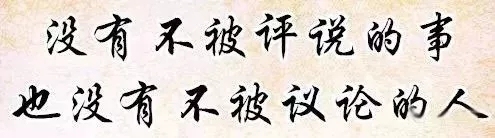 没有不被评说的事
也没有不被议论的人